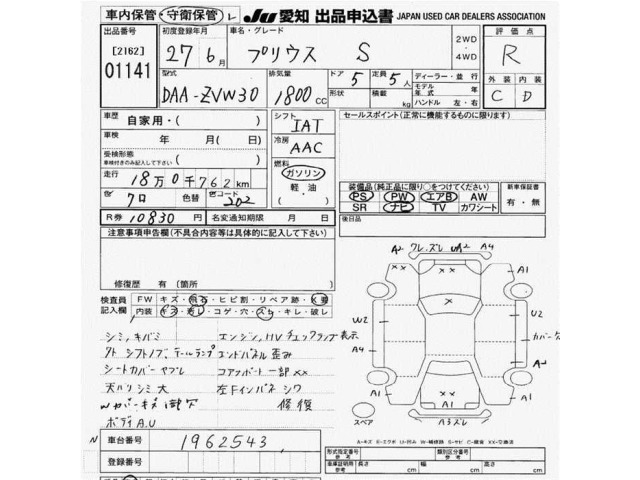 車内保管・守衛保管 レ JU 愛知 出品申込書 JAPAN USED CAR DEALERS ASSOCIATION
出品番号 初度登録年月 車名・グレード 2WD・4WD 評価点
[2162] 01141 27年6月 プリウス S R
型式 排気量 ドア 5 定員 5人 ディーラー・並行 外装 内装
DAA-ZVW30 1800cc 形状 積載 kg モデル年式 年 ハンドル 左・右 C D
車歴 自家用・( ) シフト IAT セールスポイント(正常に機能するものに限ります)
車検 年 月 日 冷房 AAC
受検形態 車検付きのみ記入して下さい
走行 18万0千762km 燃料 ガソリン 軽・油
色 クロ 色替 色コード 202 装備品(純正品に限り○をつけてください) 新車保証書
PS PW エアB AW 有・無
SR ナビ TV カワシート
R券 10830円 名変通知期限 月 日 後日品
注意事項申告欄(不具合内容等は具体的に記入して下さい)
修復歴 有(箇所
A2 ワレ、ズレ UA2 A4
検査員記入欄 FW キズ・飛石・ヒビ割・リペア跡・X要
内装 キズ・汚レ・コゲ・穴・スレ・キレ・破レ
シミ、キバミ エンジン、HV チェックランプ表示
シフトノブ、テールランプ エンドパネル歪み
シートカバー ヤブレ コアサポート一部××
天バリ シミ 大 左Fインパネ シワ
修復
ボディA.U
××
××
×
A1
A1
W2
U2
カバー
A4
A2
A1
A1
スペア
A3ズレ
車台番号 1962543
登録番号
A-キズ E-エクボ U-凹み W-補修跡 S-サビ C-腐食 XX-交換済
形式指定番号 類別区分番号
車庫証明用参考 長さ cm 幅 cm 高さ cm